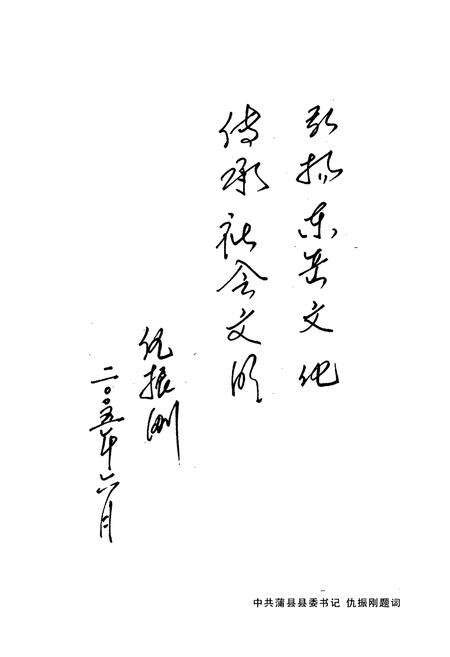 弘扬东岳文化
传承社会文明
仇振刚
二〇〇五年六月
中共蒲县县委书记 仇振刚题词